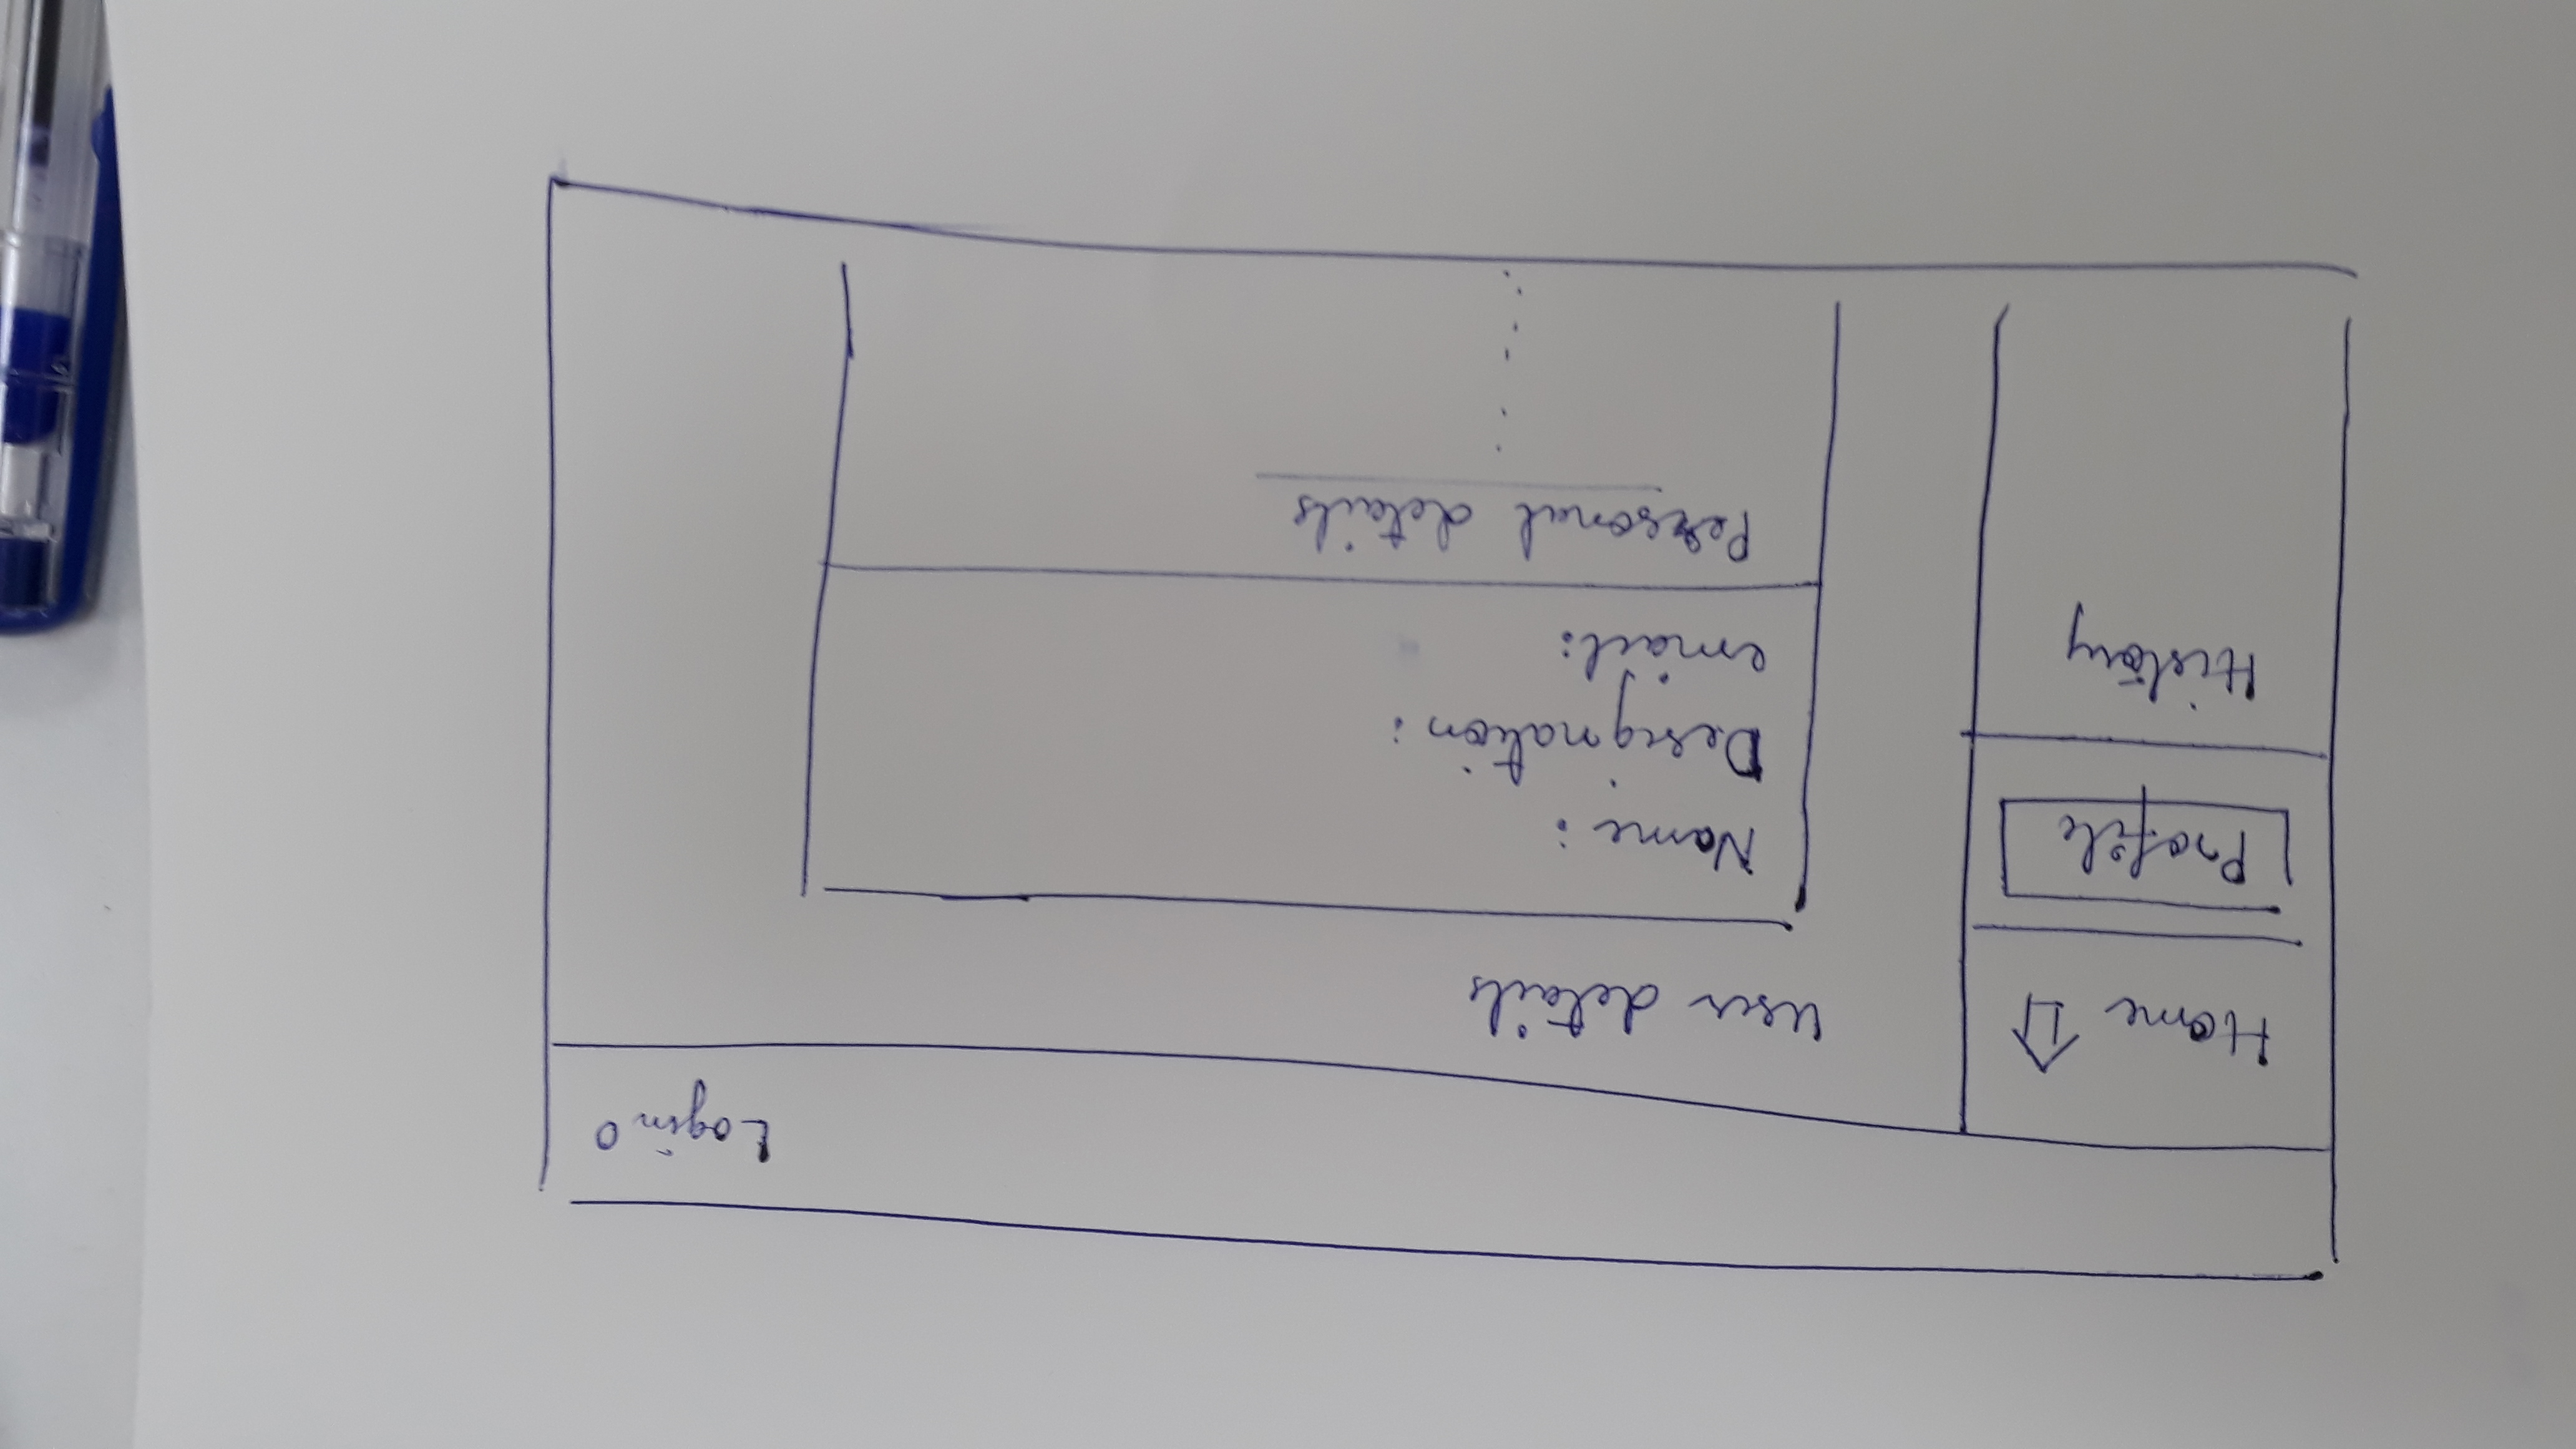 Login
Home
Profile
History
User details
Name:
Designation:
email:
Personal details